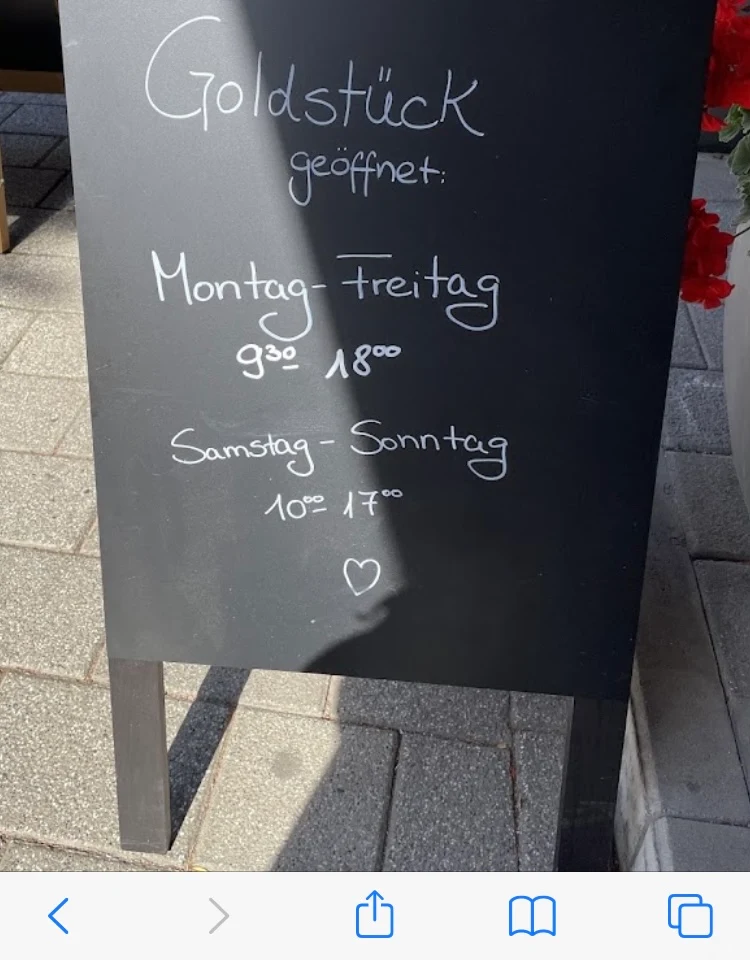 Goldstück
geöffnet:
Montag - Freitag
9³⁰ 18⁰⁰
Samstag - Sonntag
10⁰⁰ 17⁰⁰